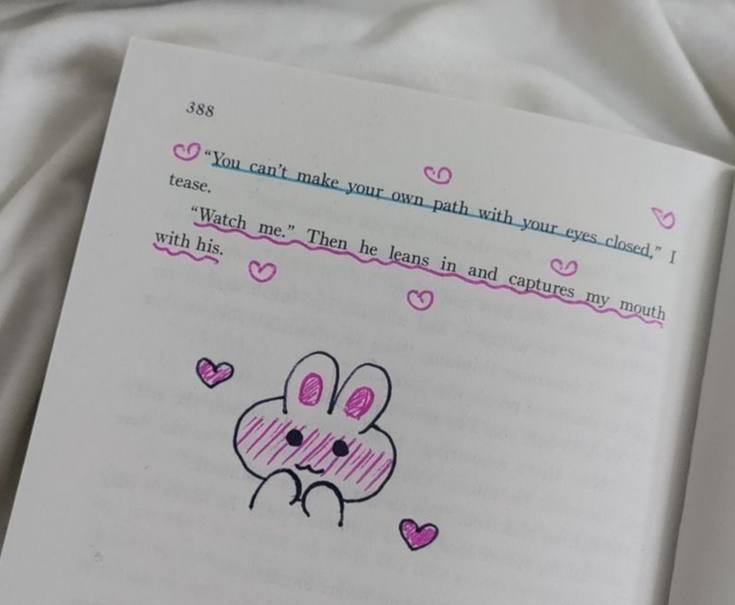 388
“You can’t make your own path with your eyes closed,” I
tease.
“Watch me.” Then he leans in and captures my mouth
with his.